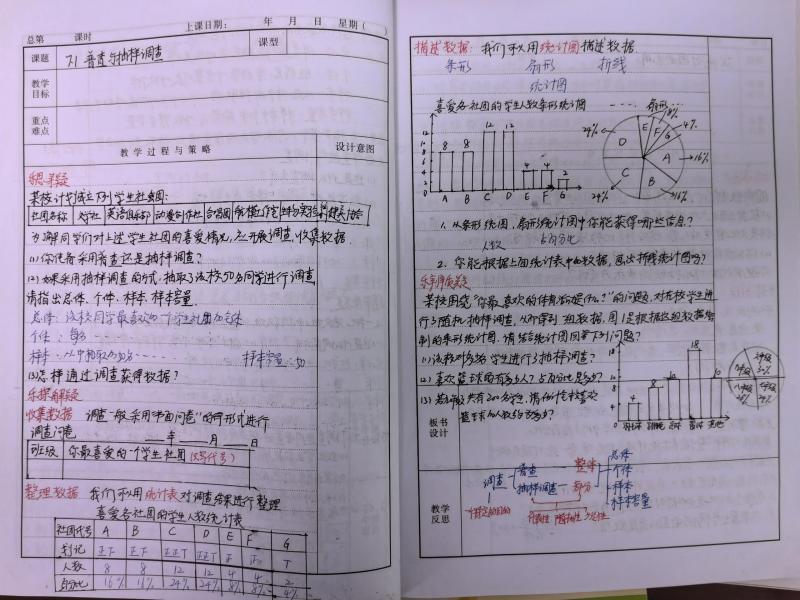 总第 课时 上课日期： 年 月 日 星期（ ）
课题 7.1 普查与抽样调查 课型
教学目标
重点难点
教学过程与策略 设计意图
某校计划成立下列学生社团：
社团名称 文学社 英语俱乐部 动漫创作社 合唱团 生物实验
为了解同学们对上述学生社团的喜爱情况，开展调查，收集数据
(1) 你认为采用普查还是抽样调查？
(2) 如果采用抽样调查的方式，抽取了该校50名同学进行调查
请指出总体，个体，样本，样本容量
总体：该校同学最喜欢的一个学生社团的全体
个体：每名……
样本：从中抽取的50名…… 样本容量：50
(3) 怎样通过调查获得数据？
收集数据 调查一般采用“书面问卷”的形式进行
调查问卷 年 月 日
班级 你最喜爱的一个学生社团（填写代号）
整理数据 我们可以用统计表对调查结果进行整理
喜爱各社团的学生人数统计表
社团代号 A B C D E F G
划记 正下 正下 正正T 正正T
人数 8 8 12 12 4 4 2
百分比 16% 16% 24% 24% 8% 8% 4%
描述数据：我们可以用统计图描述数据
条形 扇形 折线
统计图
喜爱各社团的学生人数条形统计图 扇形…
12
10
8
6
4
2
0
8 8 12 12 4 4 2
A B C D E F G
D E F G A B C
24% 8% 4% 16% 16% 24%
1. 从条形统计图，扇形统计图中你能获得哪些信息？
人数 占百分比
2. 你能根据上面统计表中的数据，画出折线统计图吗？
某校围绕“你最喜欢的体育活动是什么？”的问题，对在校学生进
行了随机抽样调查，从而得到一组数据，图1是根据这组数据绘
制的条形统计图，请结合统计图回答下列问题？
(1) 该校对多少名学生进行了抽样调查？
(2) 喜欢篮球的有多少人？占百分比是多少？
4 8 10 18 10
板书设计
教学反思
调查 普查 抽样调查
整体 部分
总体
个体
样本
样本容量
一个特定的目的